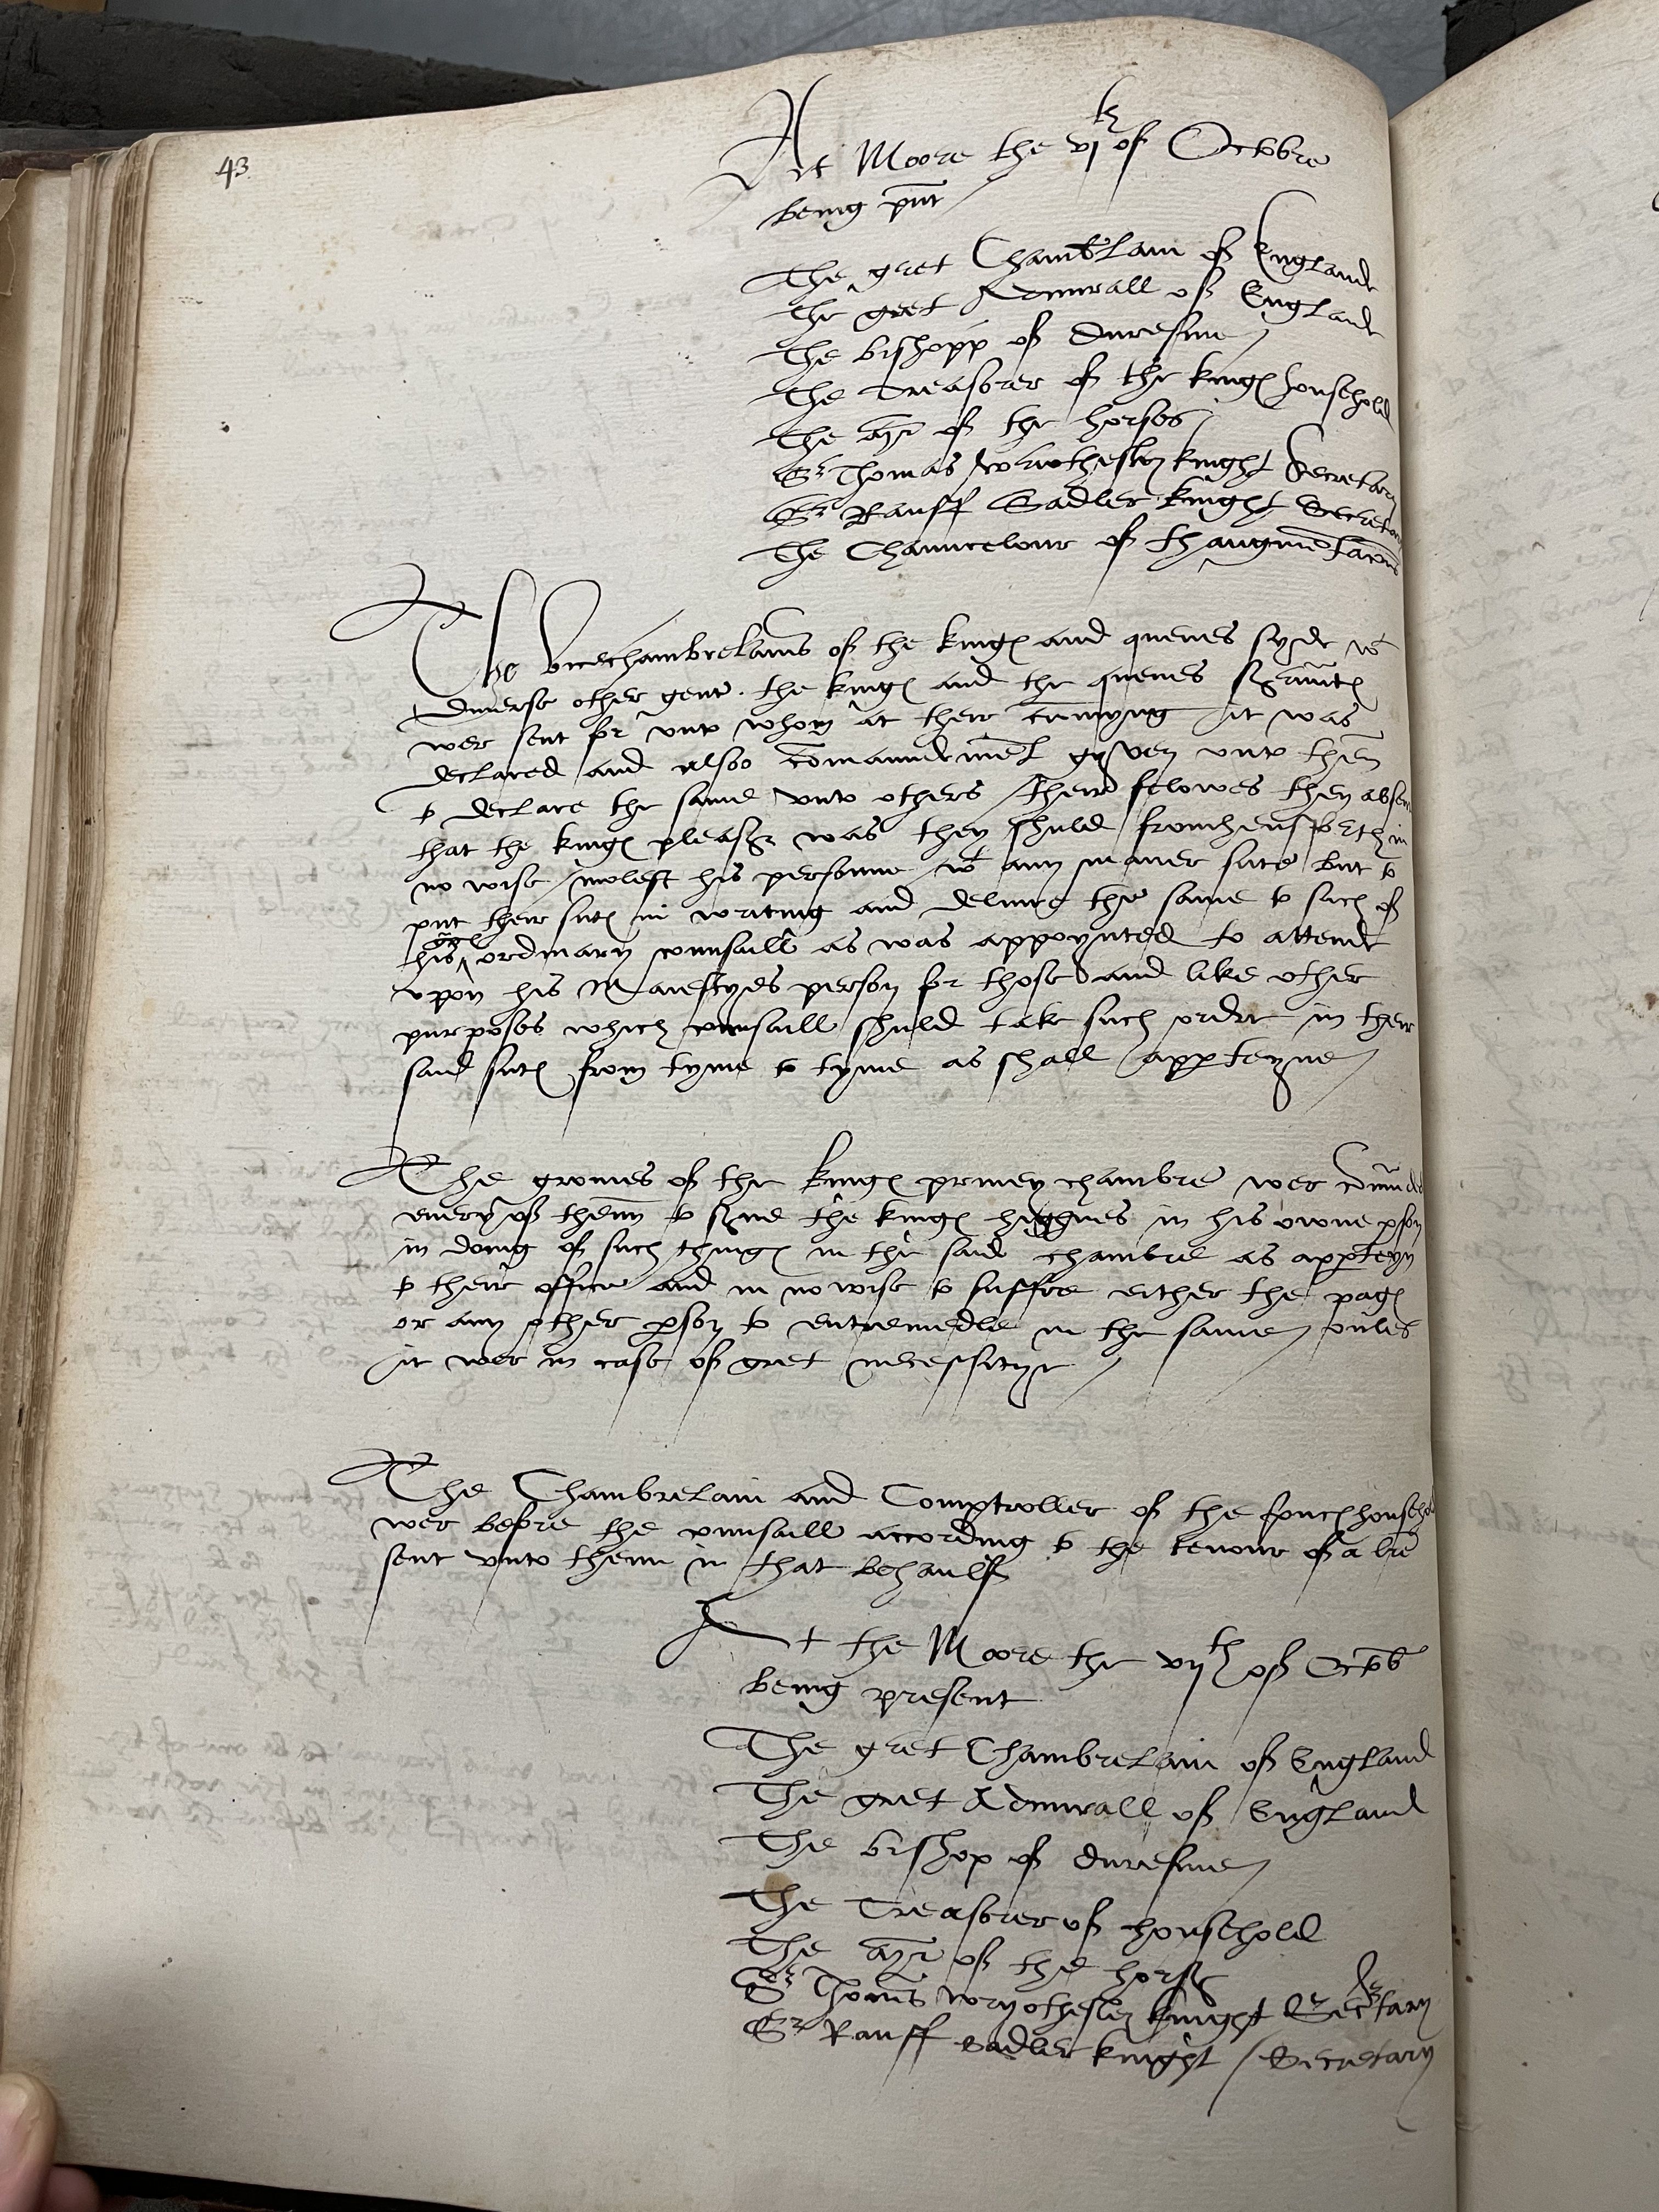 43
At Moore the vjth of Octobre
being pñt
The gret Chamb̃lain of Englande
the gret Admirall of Englande
The bisshopp of Duresme
The Treasorer of the kinges household
The mr of the horses
Sr Thomas wriothesley knight Secretary
Sr Rauff Sadler knight Secretary
The Chauncelour of thaugmẽtac̃ns
The vicechambrelains of the kinges and quenes syde wt
diuerse other gent. the kinges and the quenes sr̃uñtes
wer sent for vnto whom at their cũmyng it was
declared and alsoo cõmaundemẽt gyven vnto thẽm
to declare the same vnto others their felowes then absent
that the kinges pleasr was they shuld fromhensforth in
no wise molest his personne wt any maner sute but to
put their sutes in writing and deliure the same to such of
his ordinary counsaill as was appoynted to attende
vpon his Maiestyes person for those and like other
purposes which counsaill shuld take such ordre in their
said sutes from tyme to tyme as shall apperteyne
The gromes of the kinges priuey chambre wer cõmũded
euery of themm to srue the kinges highnes in his owne pson
in doing of such thinges in the said chambre as apperteyn
to their office and in no wise to suffre either the pages
or any other pson to entremedle in the same onles
it wer in case of gret necessityr
The Chambrelain and Comptroller of the household
wer before the counsaill according to the tenour of a lr̃e
sent vnto themm in that behaulf
At the Moore the vijth of Octob̃
being present
The gret Chambrelain of England
The gret Admirall of England
The bishop of duresme
The Treasorer of household
The mr of the horses
Sr Thom̃s wryothesley knight Secretary
Sr Rauff Sadler knight Secretary